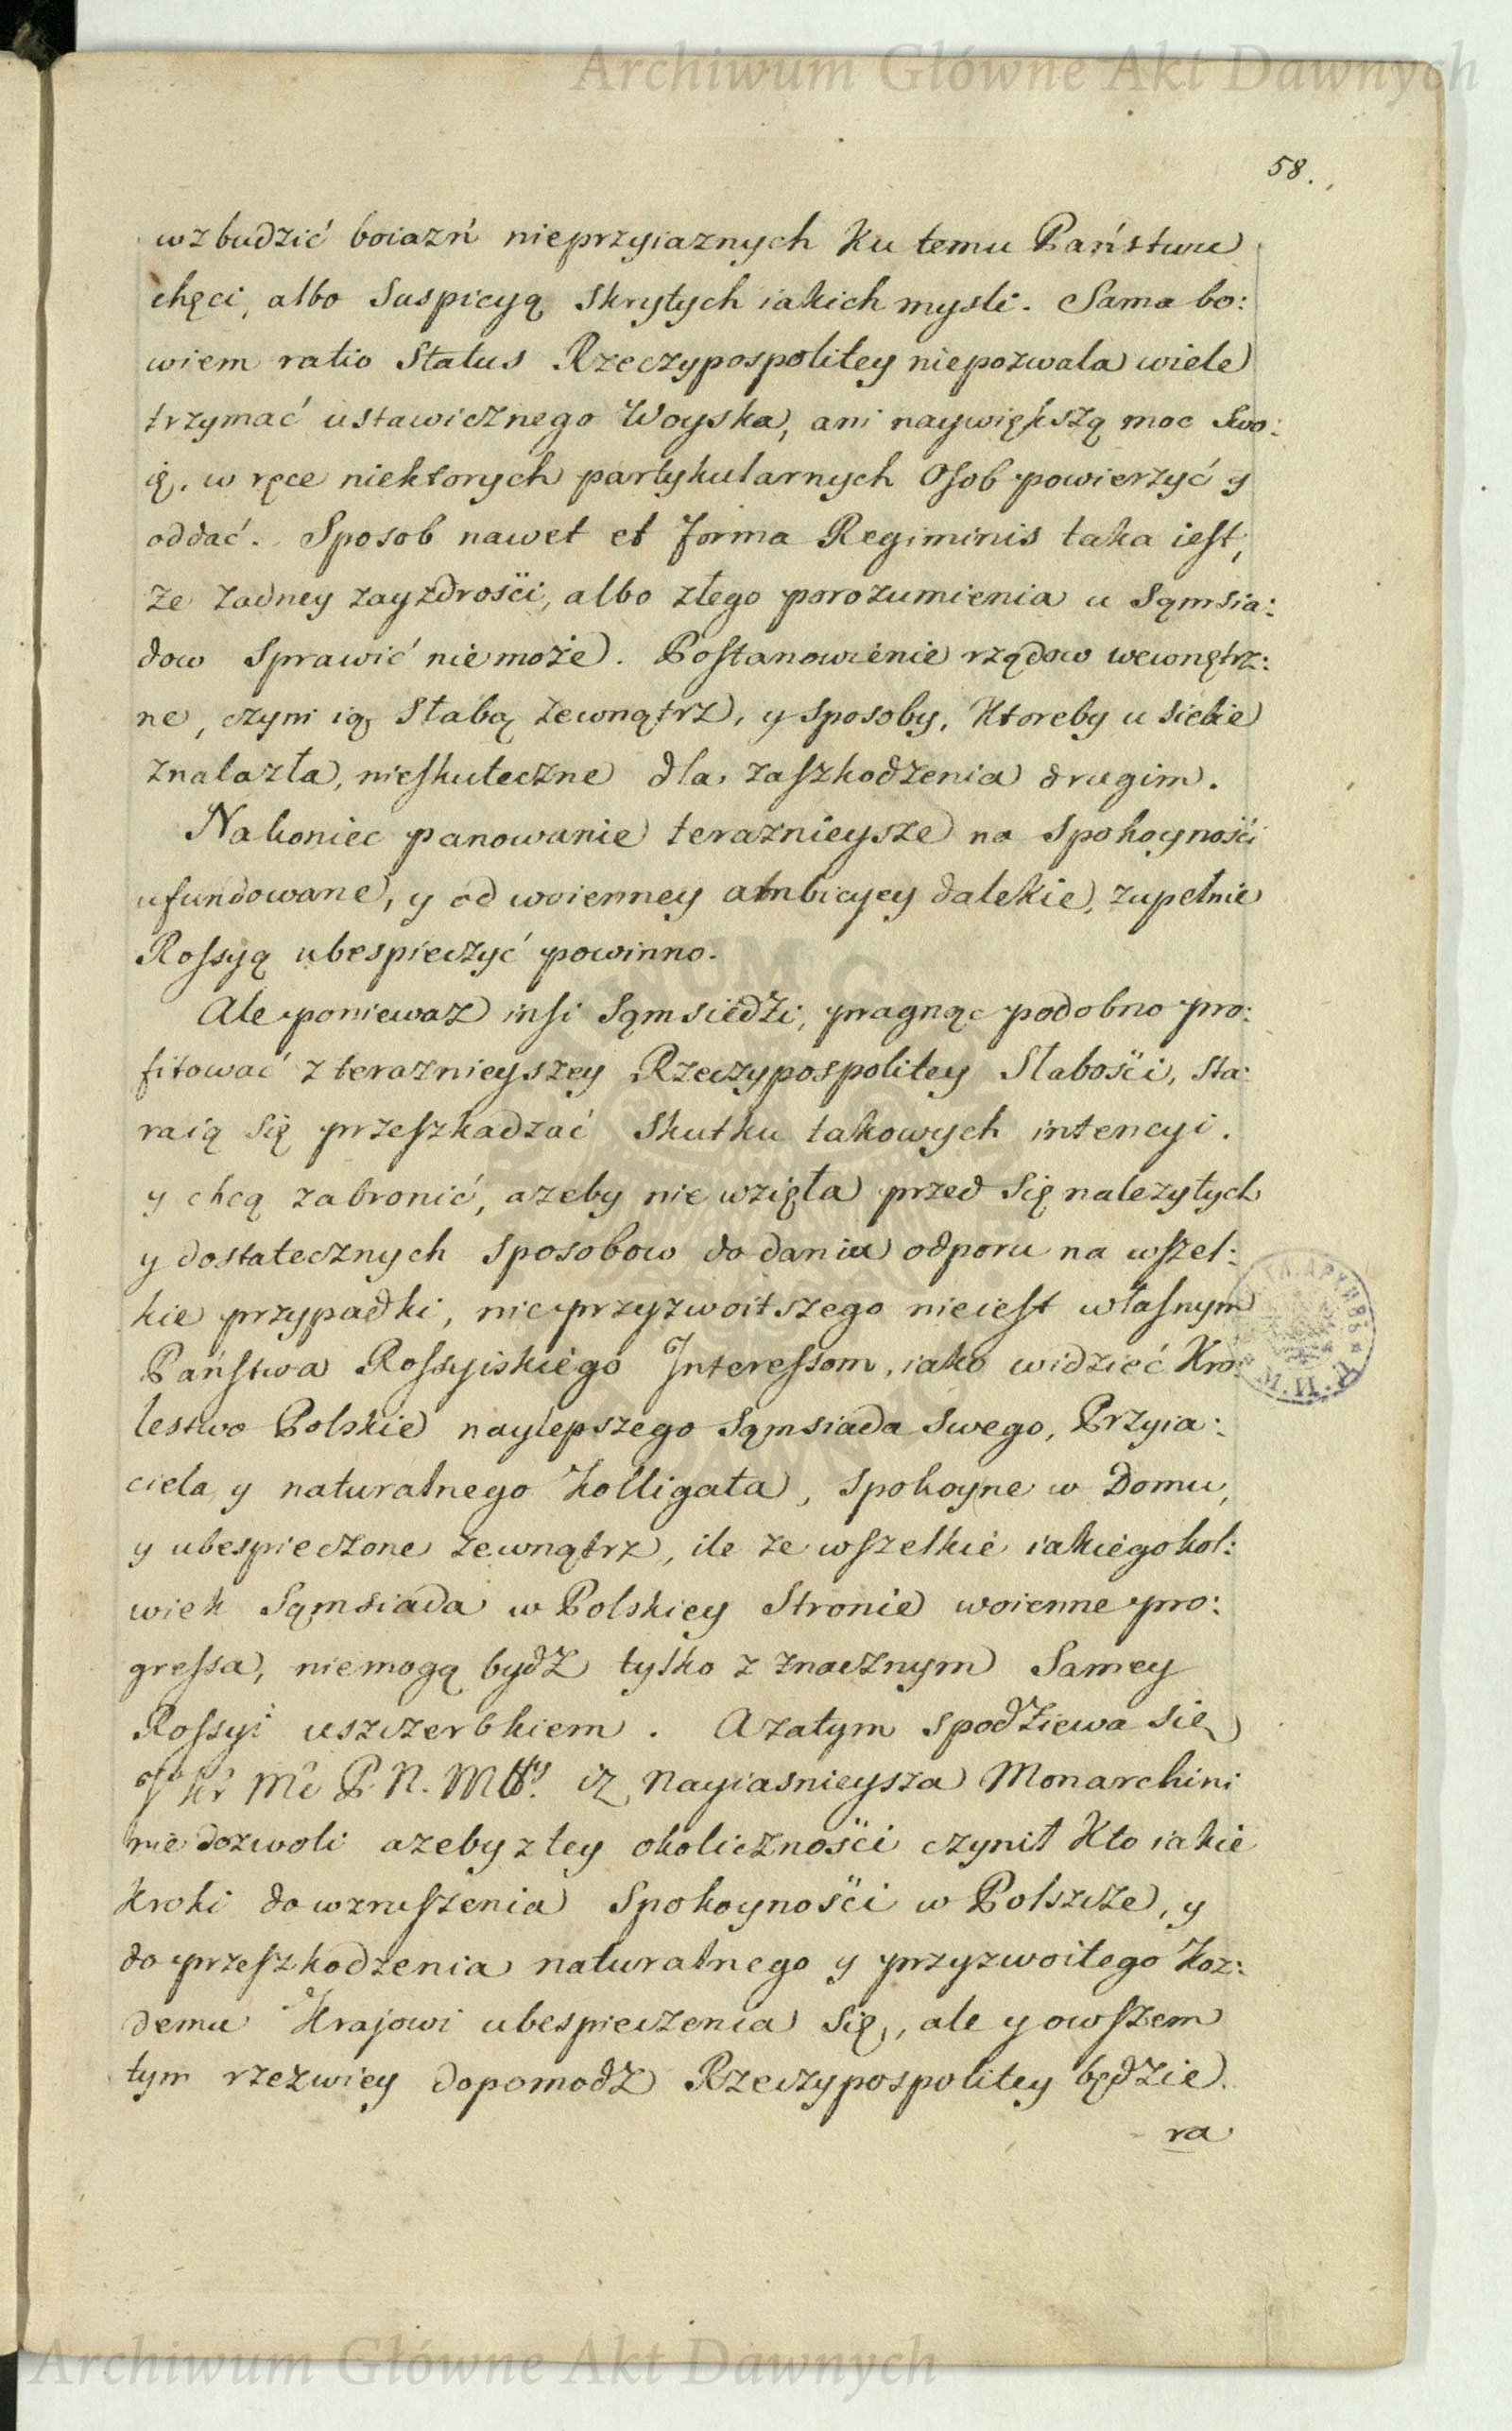 Archiwum Główne Akt Dawnych
58.
wzbudzić boiazń nieprzyiaznych Ku temu Państwu
chęci, albo Suspicyą Skrytych iakich mysli. Sama bo:
wiem ratio Status Rzeczypospolitey niepozwala wiele
trzymać ustawicznego Woyska, ani naywiększą moc Swo:
ię, w ręce niektorych partykularnych Osob powierzyć y
oddać. Sposob nawet et forma Regiminis taka iest,
że żadney zayzdrości, albo złego porozumienia u Sąmsia:
dow Sprawić niemoże. Postanowienie rządow wewnętrz:
ne, czyni ią Słabą zewnątrz, y sposoby, Ktoreby u siebie
znalazła, nieskuteczne dla zaszkodzenia drugim.
Nakoniec panowanie teraznieysze na Spokoyności
ufundowane, y od woienney ambicyey dalekie, zupełnie
Rossyą ubespieczyć powinno.
Ale poniewaz insi Sąmsiedzi, pragnąc podobno pro:
fitować z teraznieyszey Rzeczypospolitey Słabości, sta:
raią Się przeszkadzać Skutku takowych intencyi.
y chcą zabronić, azeby nie wzięła przed Się nalezytych
y dostatecznych Sposobow do dania odporu na wszel:
kie przypadki, nic przyzwoitszego nieiest własnym
Państwa Rossyiskiego Interessom, iako widzieć Kro:
lestwo Polskie naylepszego Sąmsiada Swego, Przyia:
ciela y naturalnego Kolligata, Spokoyne w Domu,
y ubespieczone zewnątrz, ile ze wszelkie iakiegokol:
wiek Sąmsiada w Polskiey Stronie woienne pro:
gressa, niemogą bydz tylko z znacznym Samey
Rossyi uszczerbkiem. Azatym spodziewa się
J Kr Mć P. N. Mtty. iz Nayiasnieysza Monarchini
nie dozwoli azeby z tey okoliczności czynił Kto iakie
Kroki do wzruszenia Spokoyności w Polszcze, y
do przeszkodzenia naturalnego y przyzwoitego Koz:
demu Krajowi ubespieczenia Się, ale y owszem
tym rzezwiey dopomodz Rzeczypospolitey będzie
ra
Archiwum Główne Akt Dawnych